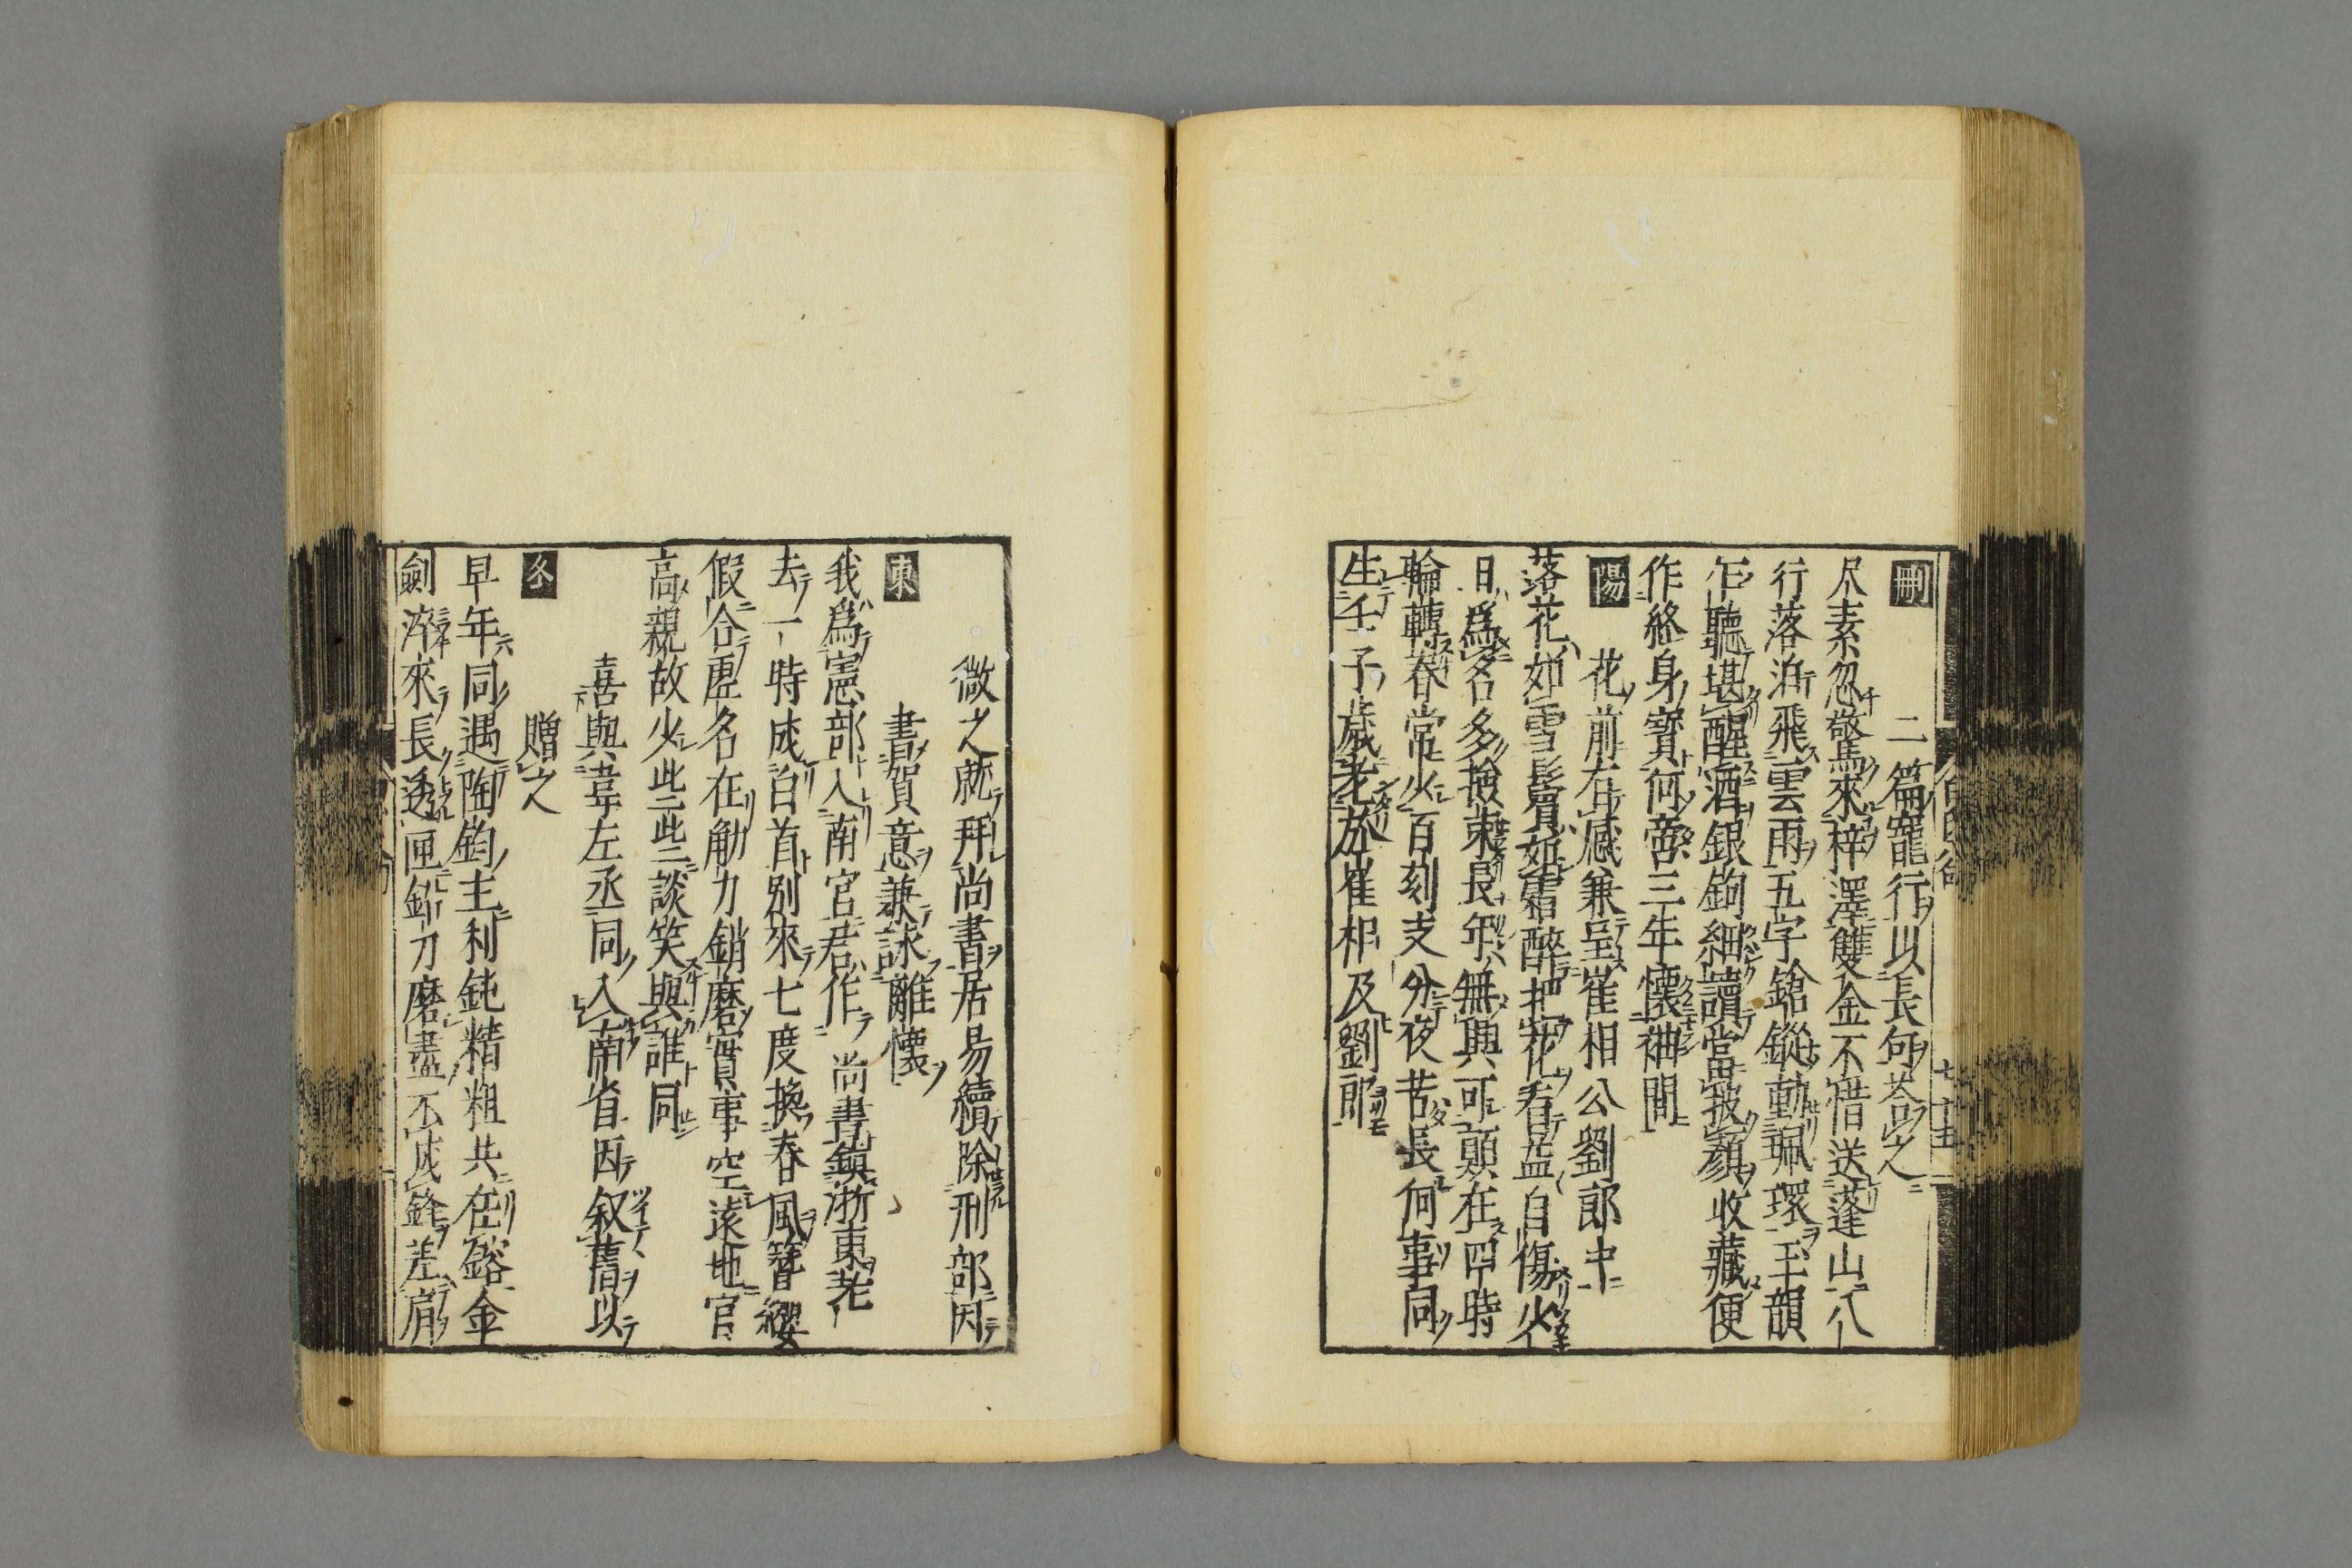 刪
二篇寵行以長句荅之
尺素忽驚來梓澤雙金不惜送蓬山八
行落泊飛雲雨五字鎗鏦動珮環玉韻
乍聽堪醒酒銀鉤細讀當披顏收藏便
作終身寶何啻三年懷袖間
陽
花前有感兼呈崔相公劉郎中
落花如雪鬢如霜醉把花看益自傷少
日爲名多撿束長年無興可顛狂四時
輪轉春常少百刻支分夜苦長何事同
生壬子歲老於崔相及劉郎
微之就拜尚書居易續除刑部因
書賀意兼詠離懷
東
我爲憲部入南官君作尚書鎭浙東老
去一時成白首別來七度換春風簪纓
假合虛名在觔力銷磨實事空遠地官
高親故少些些談笑與誰同
喜與韋左丞同入南省因叙舊以
贈之
早年同遇陶鈞主利鈍精粗共在鎔金
劍淬來長透匣鉛刀磨盡不成鋒差肩